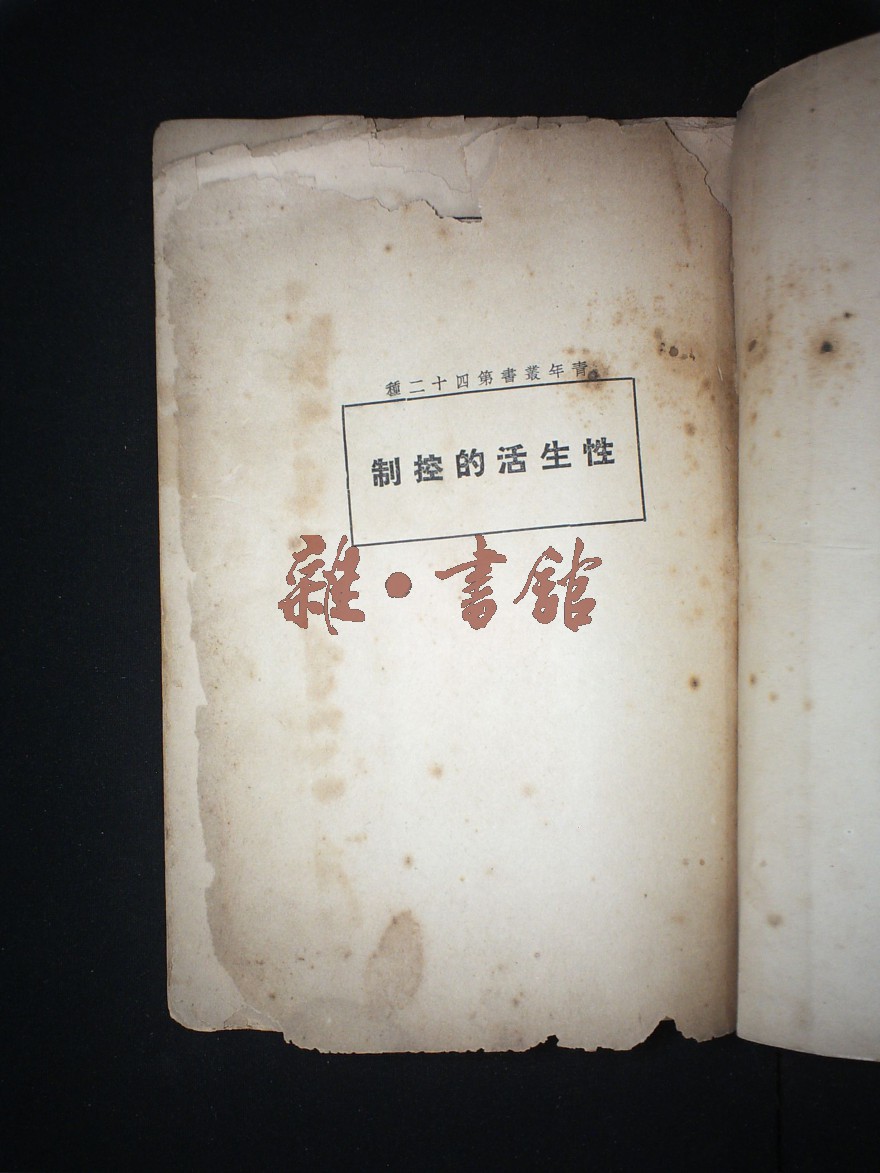 青年叢書第四十二種
性生活的控制
雜•書館